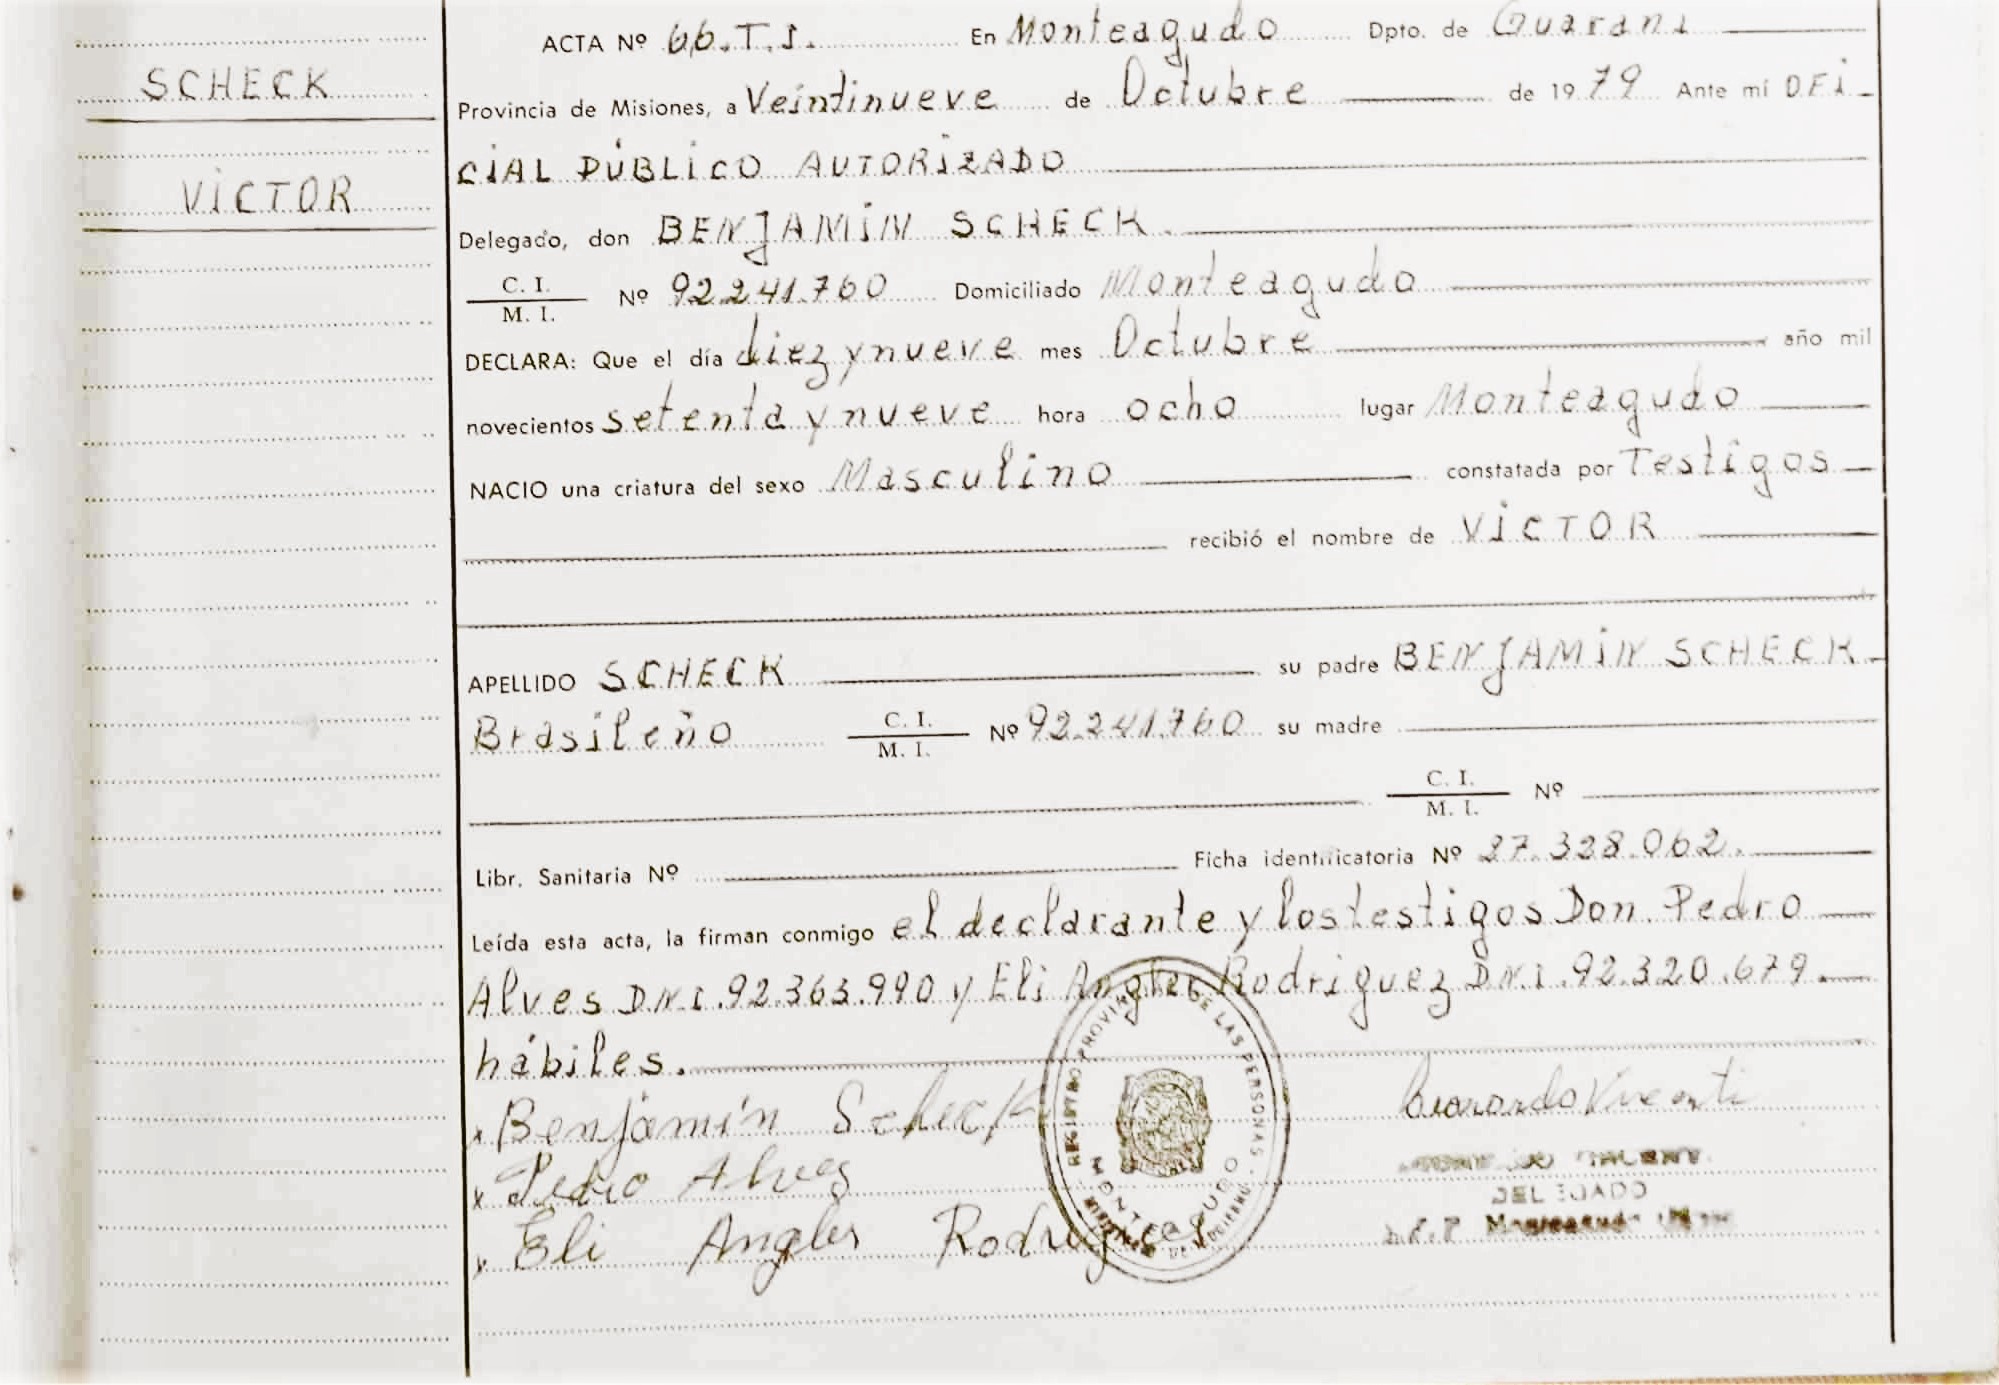 SCHECK
VICTOR
ACTA Nº 66.T.I. En Monteagudo Dpto. de Guarani
Provincia de Misiones, a Veintinueve de Octubre de 1979 Ante mí OFi
CIAL PÚBLICO AUTORIZADO
Delegado, don BENJAMIN SCHECK.
C. I.
M. I.
Nº 92.241.760 Domiciliado Monteagudo
DECLARA: Que el día diez y nueve mes Octubre año mil
novecientos setenta y nueve hora ocho lugar Monteagudo
NACIO una criatura del sexo Masculino constatada por Testigos
recibió el nombre de VICTOR
APELLIDO SCHECK su padre BENJAMIN SCHECK
Brasileño C. I. Nº 92.241.760 su madre
M. I.
C. I. Nº
M. I.
Libr. Sanitaria Nº Ficha identificatoria Nº 27.328.062.
Leída esta acta, la firman conmigo el declarante y los testigos Don Pedro
Alves D.N.I. 92.363.990 y Eli Angles Rodriguez D.N.I. 92.320.679.
hábiles.
x Benjamin Scheck
x Pedro Alves
x Eli Angles Rodriguez
REGISTRO PROVIN DE LAS PERSONAS
MONTEAGUDO
DELEGADO